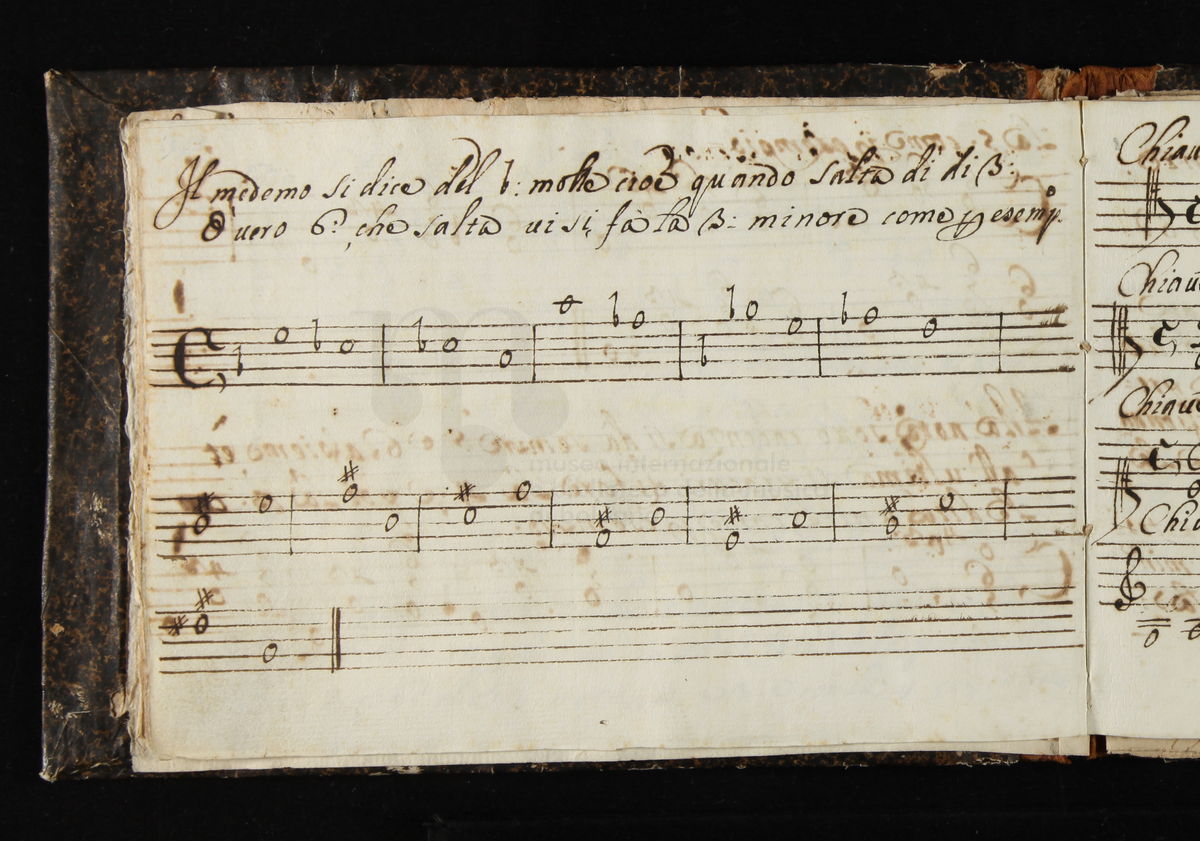 Il medemo si dice del b: molle cioè quando salta di di 3:
ò vero 6ª che salta vi si fà la 3: minore come p esemp.º
museo internazionale
Chiav
Chiav
Chiav
Chi